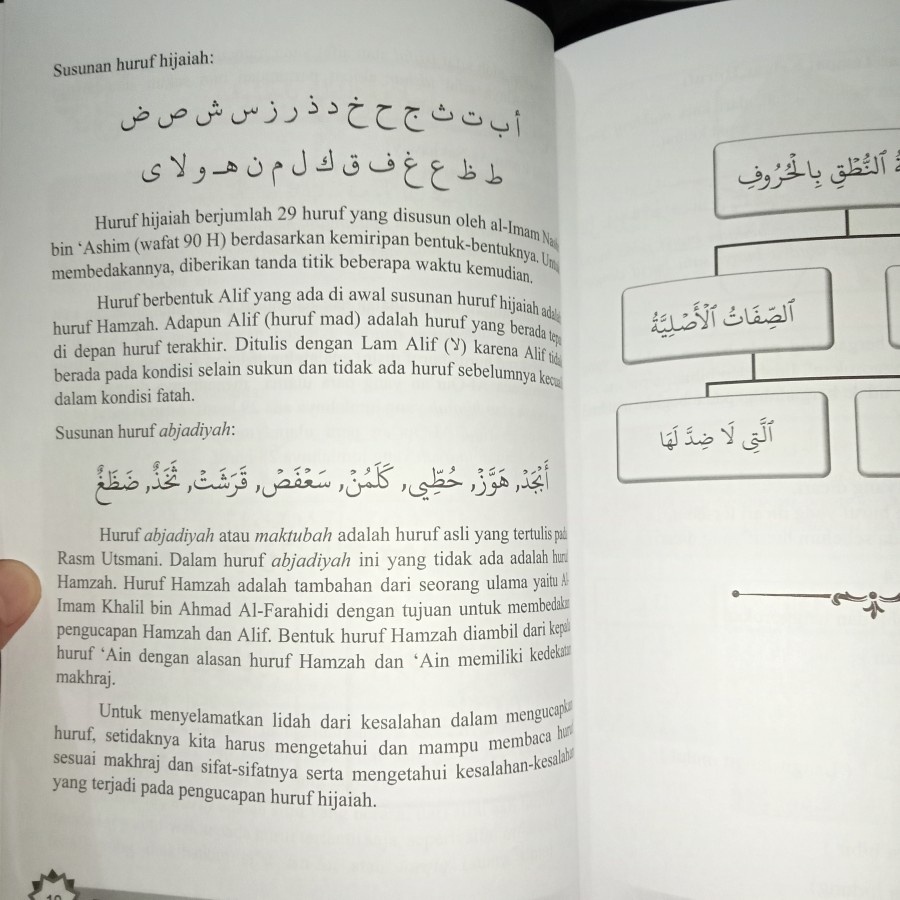 Susunan huruf hijaiah:
أ ب ت ث ج ح خ د ذ ر ز س ش ص ض
ط ظ ع غ ف ق ك ل م ن هـ و لا ى
Huruf hijaiah berjumlah 29 huruf yang disusun oleh al-Imam
bin ‘Ashim (wafat 90 H) berdasarkan kemiripan bentuk-bentuknya.
membedakannya, diberikan tanda titik beberapa waktu kemudian.
Huruf berbentuk Alif yang ada di awal susunan huruf hijaiah
huruf Hamzah. Adapun Alif (huruf mad) adalah huruf yang berada
di depan huruf terakhir. Ditulis dengan Lam Alif (لا) karena Alif
berada pada kondisi selain sukun dan tidak ada huruf sebelumnya
dalam kondisi fatah.
Susunan huruf abjadiyah:
أَبْجَدْ, هَوَّزْ, حُطِّي, كَلَمُنْ, سَعْفَصْ, قَرَشَتْ, ثَخَذٌ, ضَظَغٌ
Huruf abjadiyah atau maktubah adalah huruf asli yang tertulis
Rasm Utsmani. Dalam huruf abjadiyah ini yang tidak ada adalah
Hamzah. Huruf Hamzah adalah tambahan dari seorang ulama yaitu
Imam Khalil bin Ahmad Al-Farahidi dengan tujuan untuk membedakan
pengucapan Hamzah dan Alif. Bentuk huruf Hamzah diambil dari
huruf ‘Ain dengan alasan huruf Hamzah dan ‘Ain memiliki kedekatan
makhraj.
Untuk menyelamatkan lidah dari kesalahan dalam mengucapkan
huruf, setidaknya kita harus mengetahui dan mampu membaca
sesuai makhraj dan sifat-sifatnya serta mengetahui kesalahan-kesalahan
yang terjadi pada pengucapan huruf hijaiah.
النُّطْقِ بِالْحُرُوفِ
الصِّفَاتُ الْأَصْلِيَّةُ
الَّتِي لَا ضِدَّ لَهَا